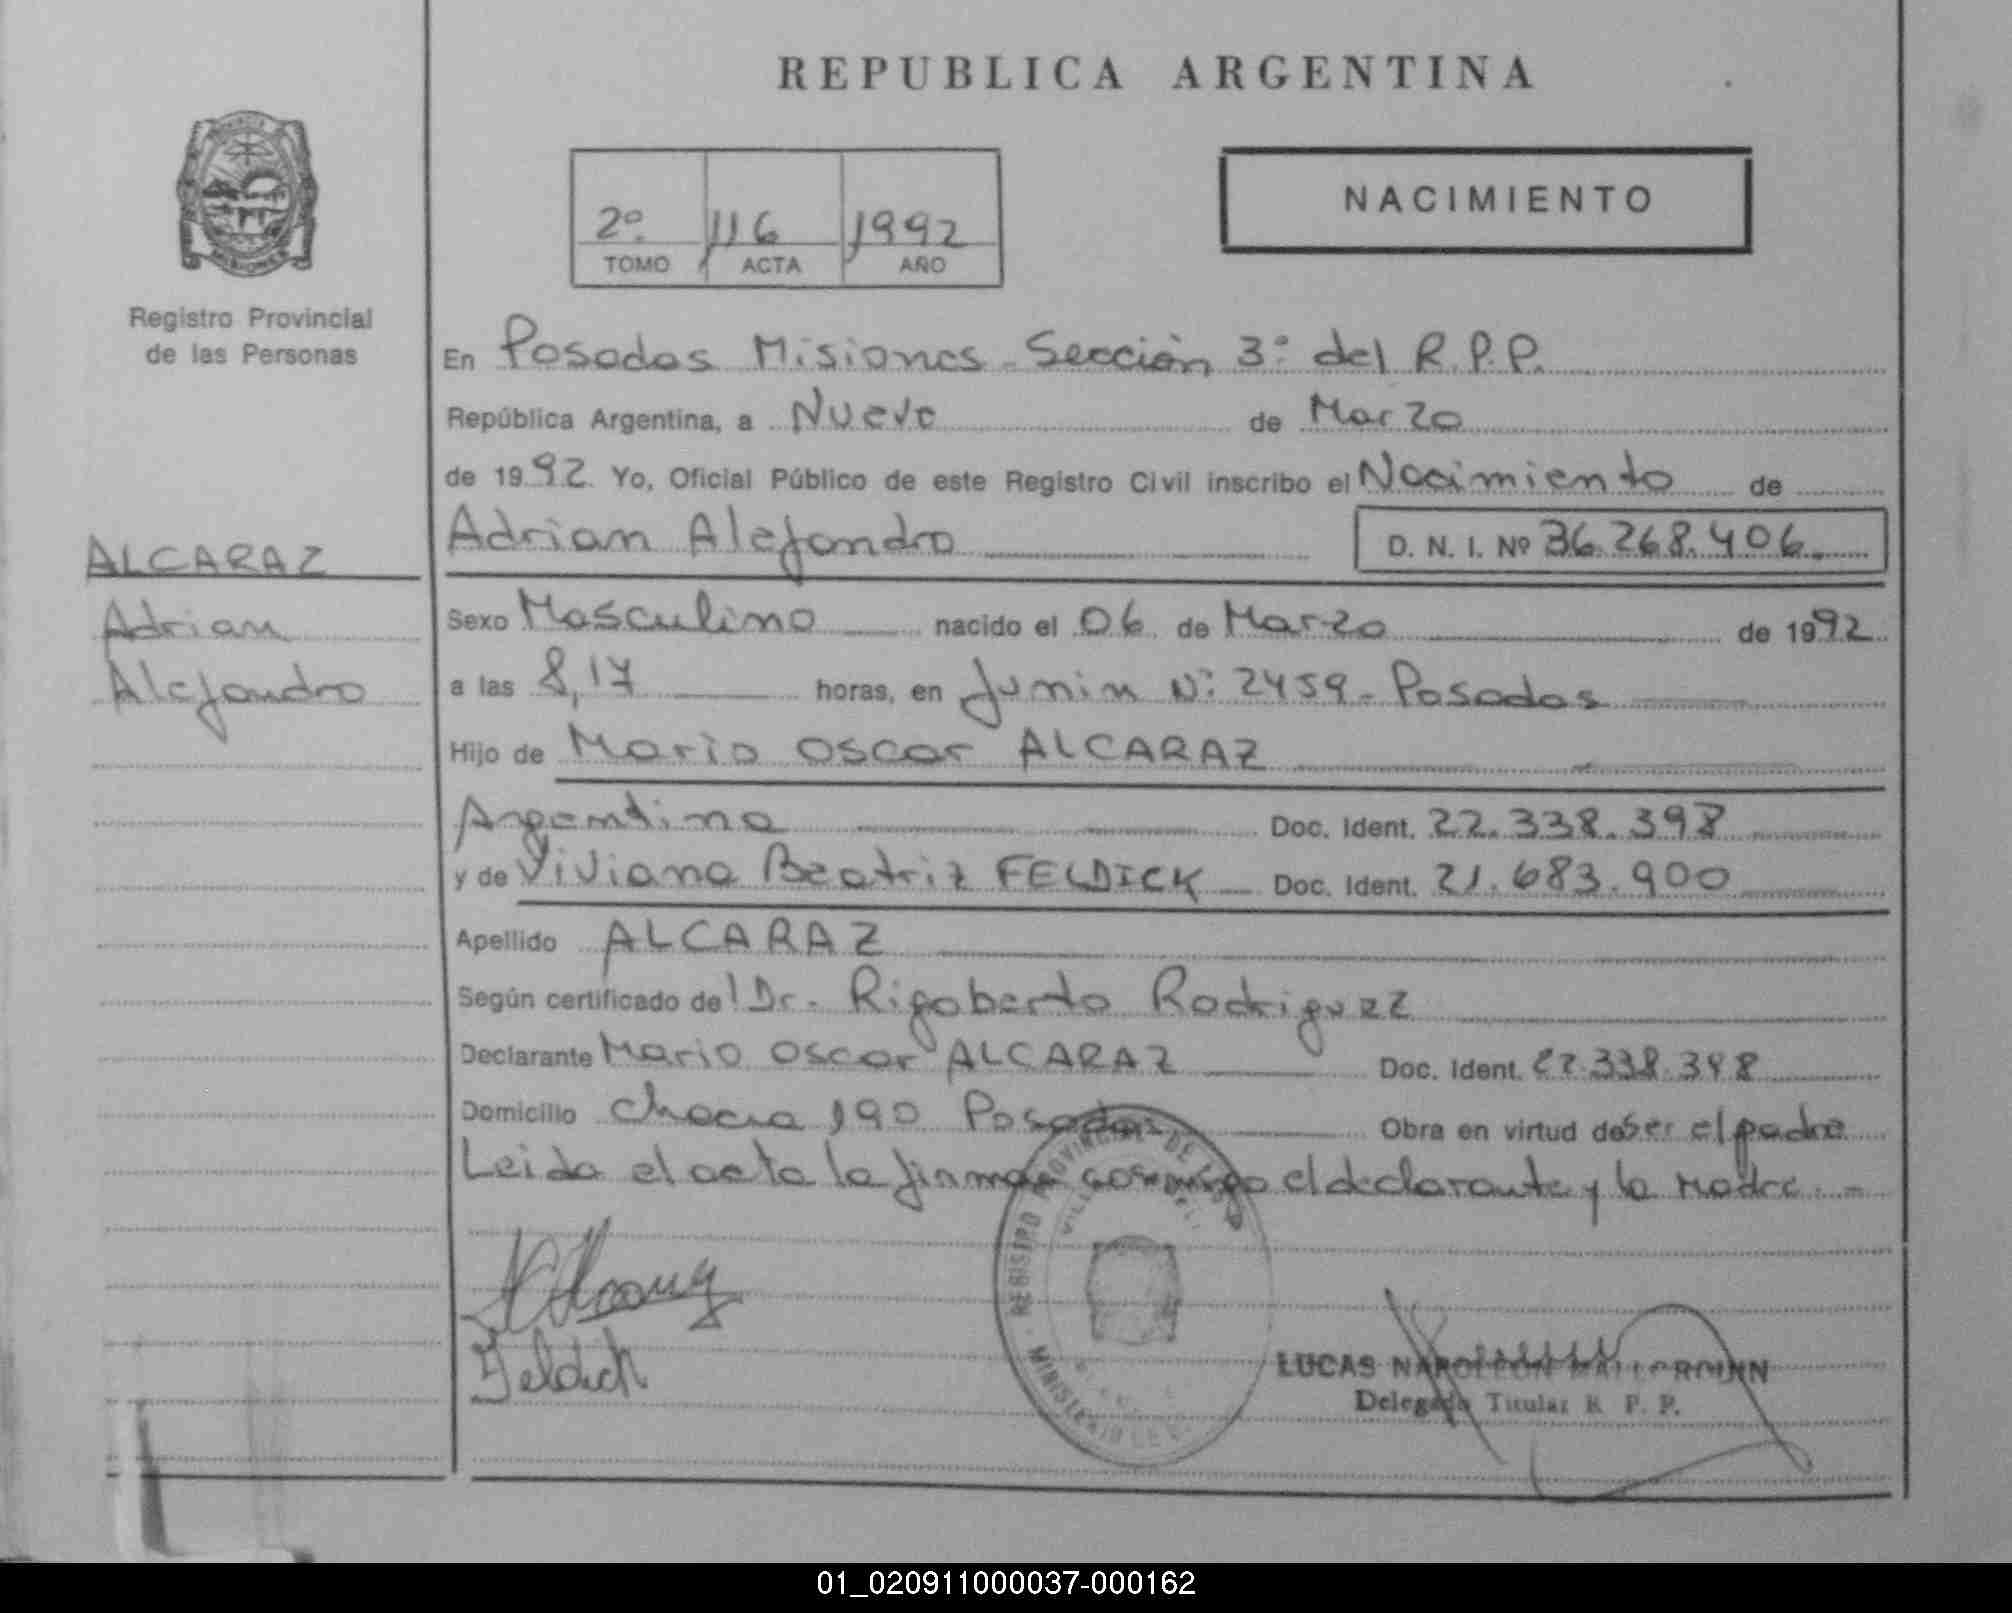 REPUBLICA ARGENTINA
NACIMIENTO
2º 116 1992
TOMO ACTA AÑO
Registro Provincial
de las Personas
En Posadas Misiones - Sección 3º del R.P.P.
República Argentina, a Nueve de Marzo
de 1992. Yo, Oficial Público de este Registro Civil inscribo el Nacimiento de
Adrian Alejandro D. N. I. Nº 36.268.406.
ALCARAZ
Adrian
Alejandro
Sexo Masculino nacido el 06 de Marzo de 1992
a las 8,17 horas, en Junin Nº 2459 - Posadas
Hijo de Mario Oscar ALCARAZ
Argentina Doc. Ident. 22.338.398
y de Viviana Beatriz FELDICK Doc. Ident. 21.683.900
Apellido ALCARAZ
Según certificado del Dr. Rigoberto Rodriguez
Declarante Mario Oscar ALCARAZ Doc. Ident. 22.338.398
Domicilio Chacra 190 Posadas Obra en virtud de ser el padre
Leida el acta la firman conmigo el declarante y la Madre. -
REGISTRO PROVINCIAL DE
MINISTERIO DE
Feldick
LUCAS NAPOLEON
Delegado Titular R. P. P.
01_020911000037-000162